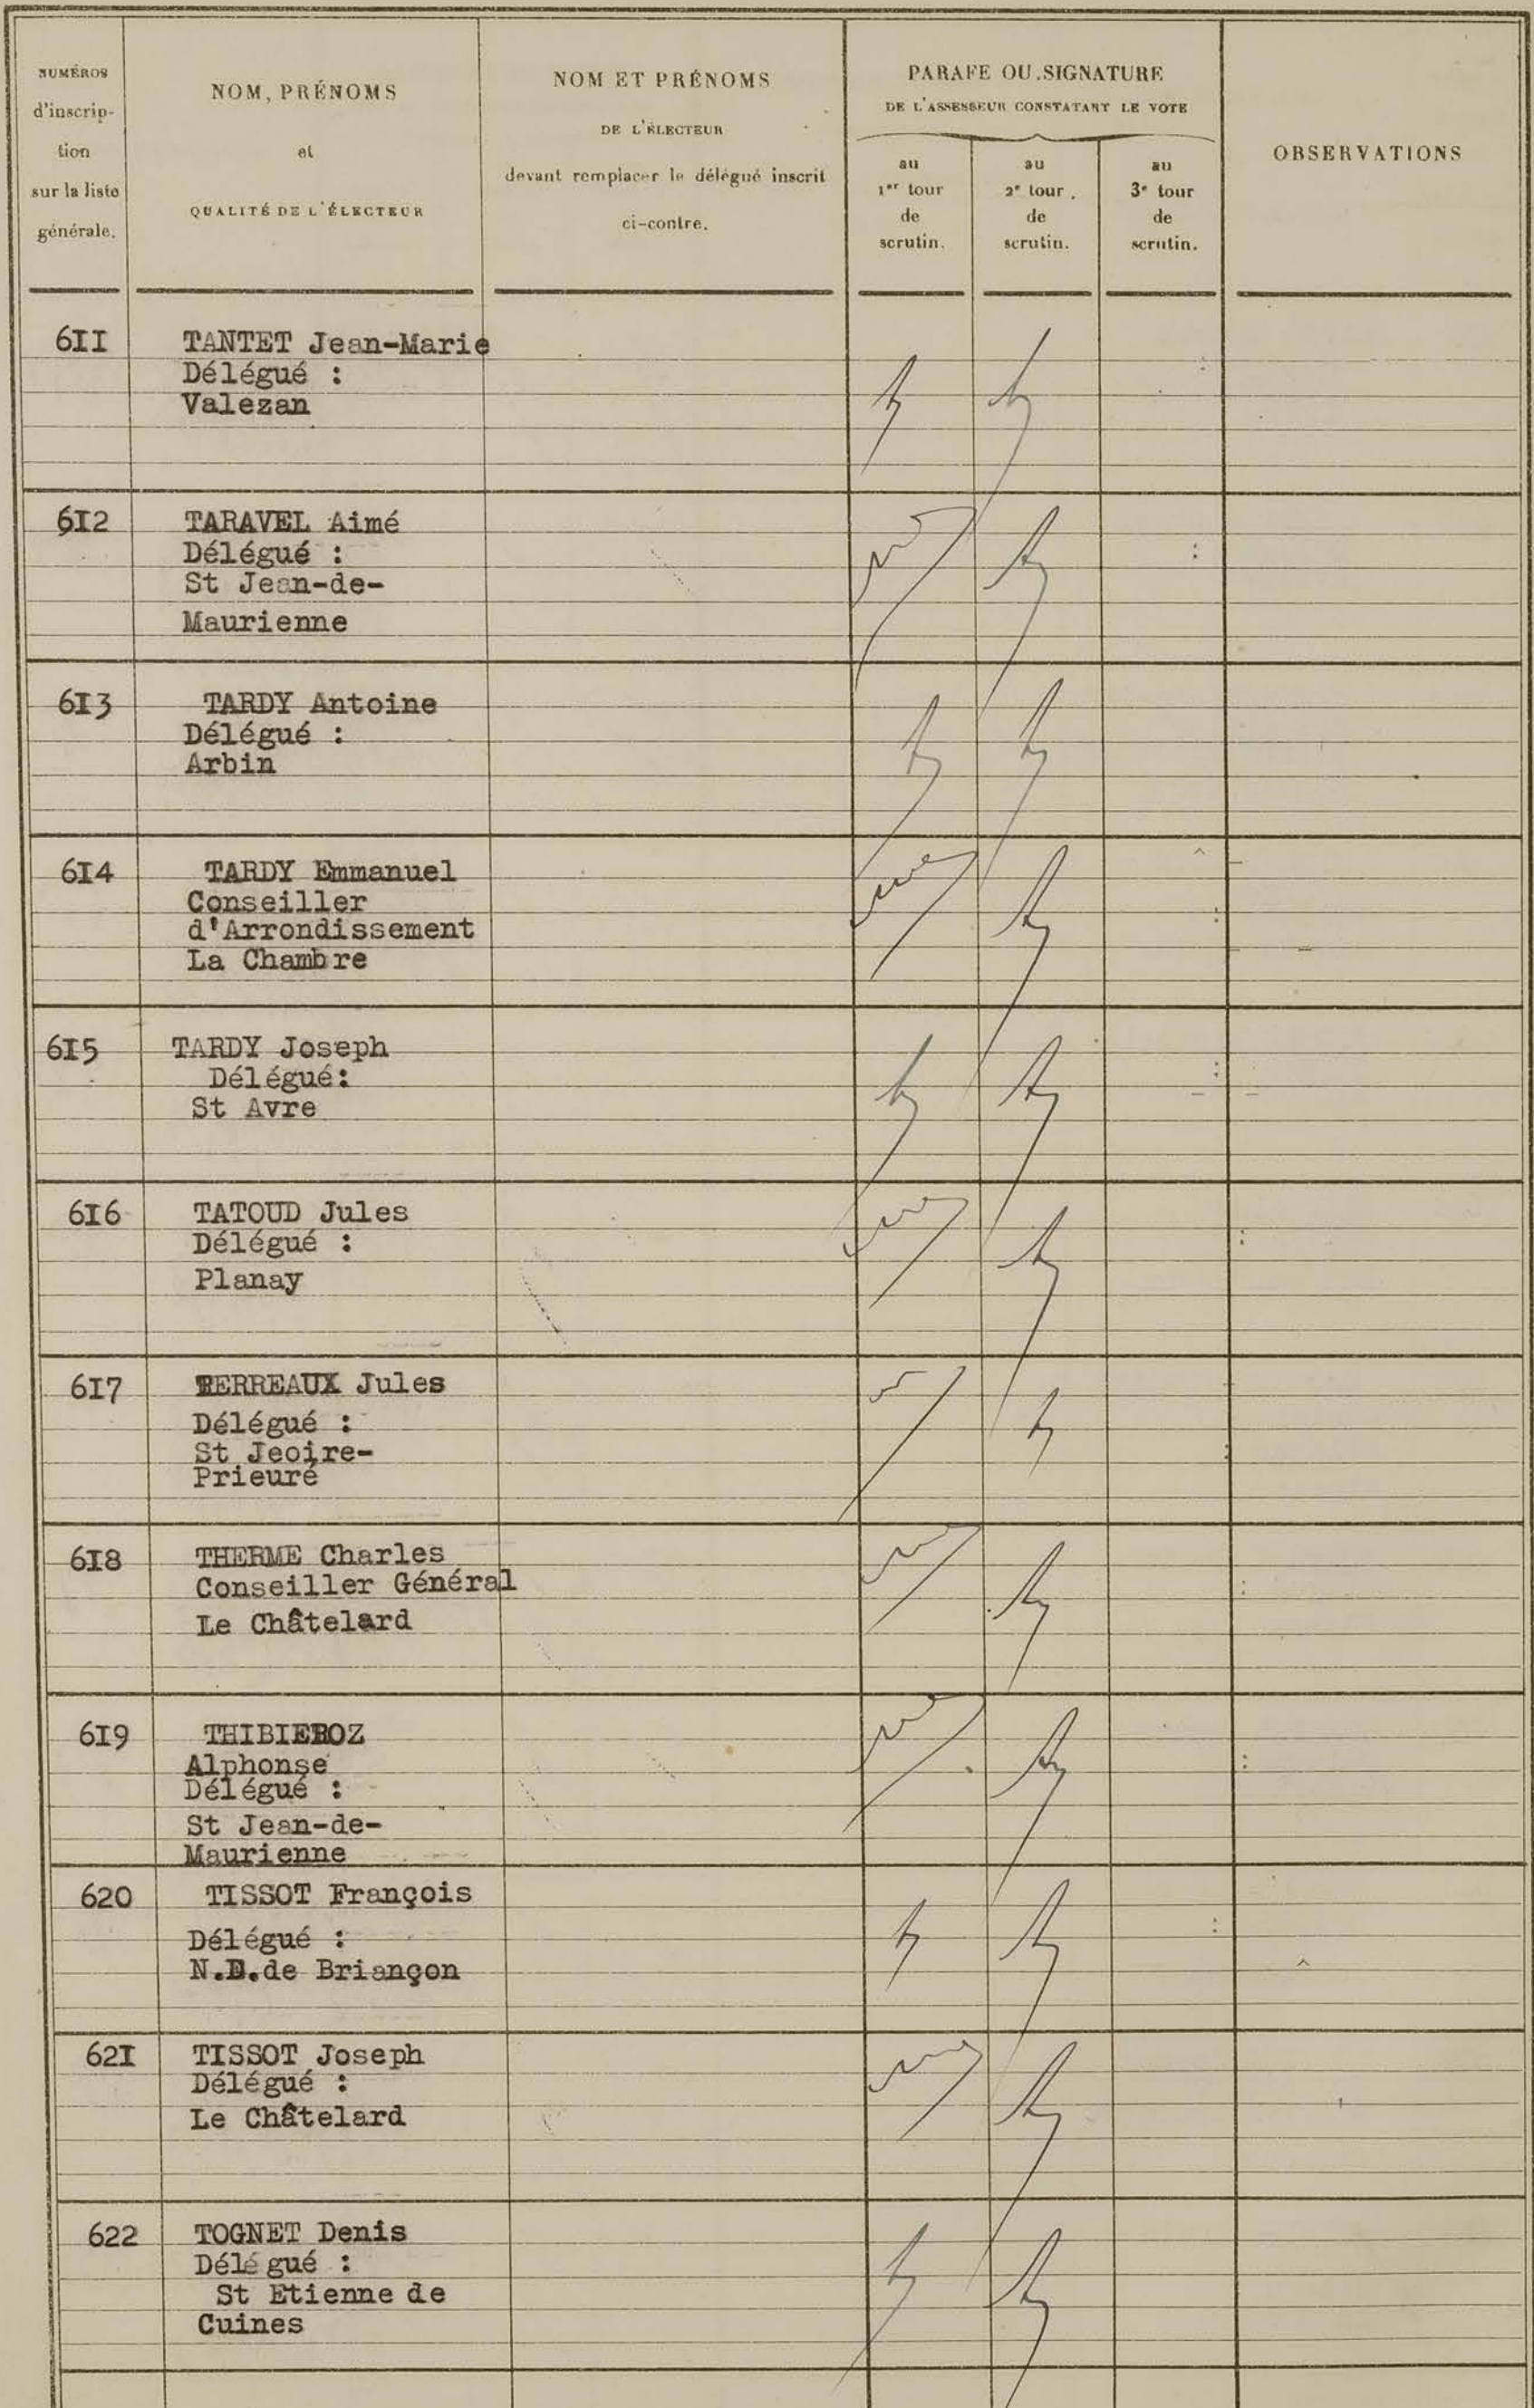 NUMÉROS
d'inscrip-
tion
sur la liste
générale.
NOM, PRÉNOMS
et
QUALITÉ DE L'ÉLECTEUR
NOM ET PRÉNOMS
DE L'ÉLECTEUR
devant remplacer le délégué inscrit
ci-contre.
PARAFE OU SIGNATURE
DE L'ASSESSEUR CONSTATANT LE VOTE
au
1er tour
de
scrutin.
au
2e tour.
de
scrutin.
au
3e tour
de
scrutin.
OBSERVATIONS
6II TANTET Jean-Marie
Délégué :
Valezan
6I2 TARAVEL Aimé
Délégué :
St Jean-de-
Maurienne
6I3 TARDY Antoine
Délégué :
Arbin
6I4 TARDY Emmanuel
Conseiller
d'Arrondissement
La Chambre
6I5 TARDY Joseph
Délégué:
St Avre
6I6 TATOUD Jules
Délégué :
Planay
6I7 TERREAUX Jules
Délégué :
St Jeoire-
Prieuré
6I8 THERME Charles
Conseiller Général
Le Châtelard
6I9 THIBIEROZ
Alphonse
Délégué :
St Jean-de-
Maurienne
620 TISSOT François
Délégué :
N.D.de Briançon
62I TISSOT Joseph
Délégué :
Le Châtelard
622 TOGNET Denis
Délégué :
St Etienne de
Cuines